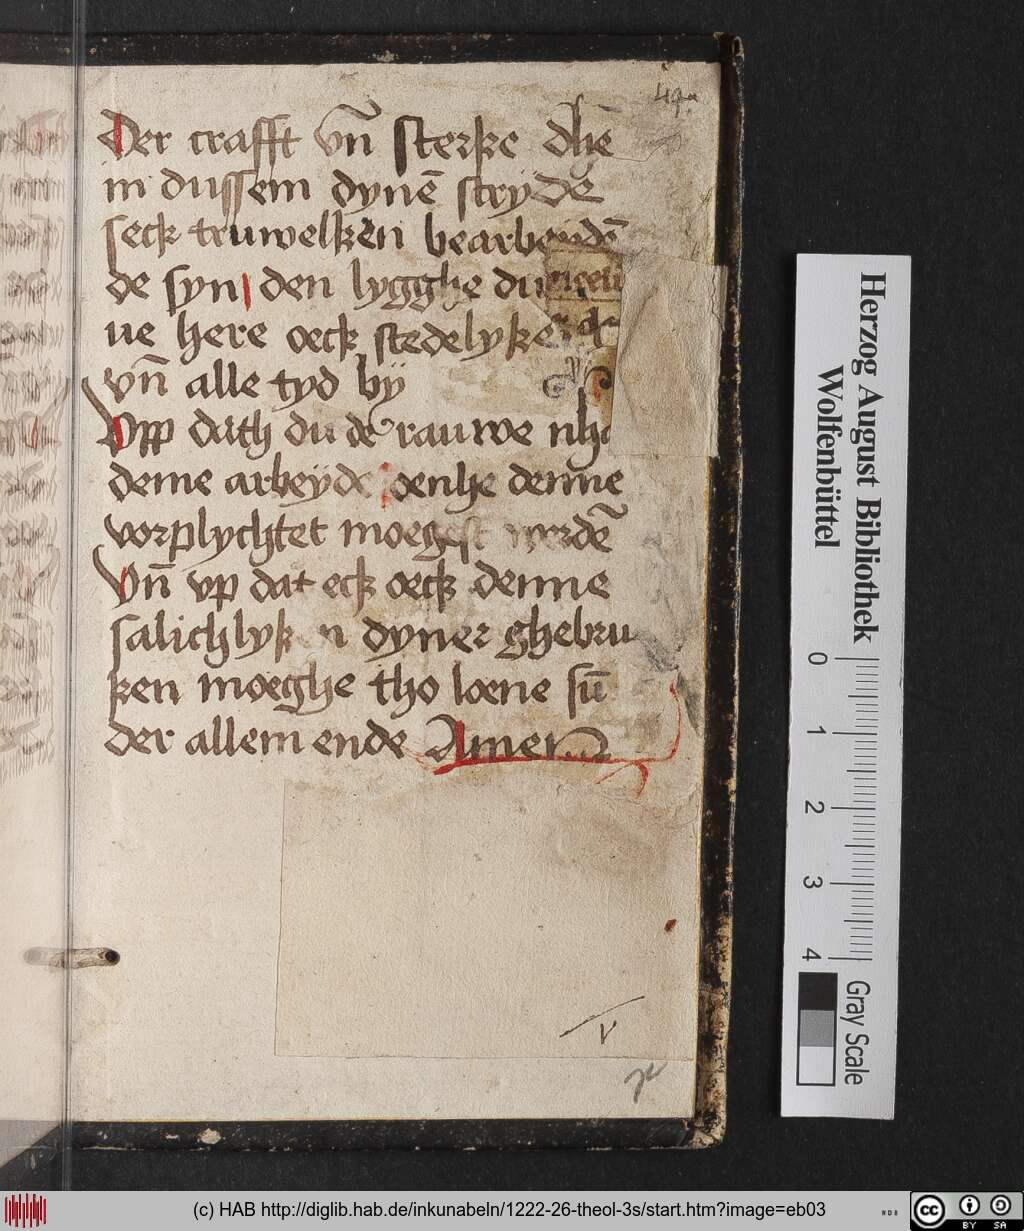 Der crafft vn̄ sterke dhē
in dussem dynē stryde
seck truwelken
de syn den lygghe
ue here oeck stedelyken
vn̄ alle tyd by
Vpp dath du de rauwe
deme arbeyde oenhe denne
vorplychtet moegest werdē
Vn̄ vp dat eck oeck denne
salichlyken dyner ghebru
ken moeghe tho loene sū
der allem ende Amen
Herzog August Bibliothek
Wolfenbüttel
0 1 2 3 4
Gray Scale
(c) HAB http://diglib.hab.de/inkunabeln/1222-26-theol-3s/start.htm?image=eb03
cc BY SA